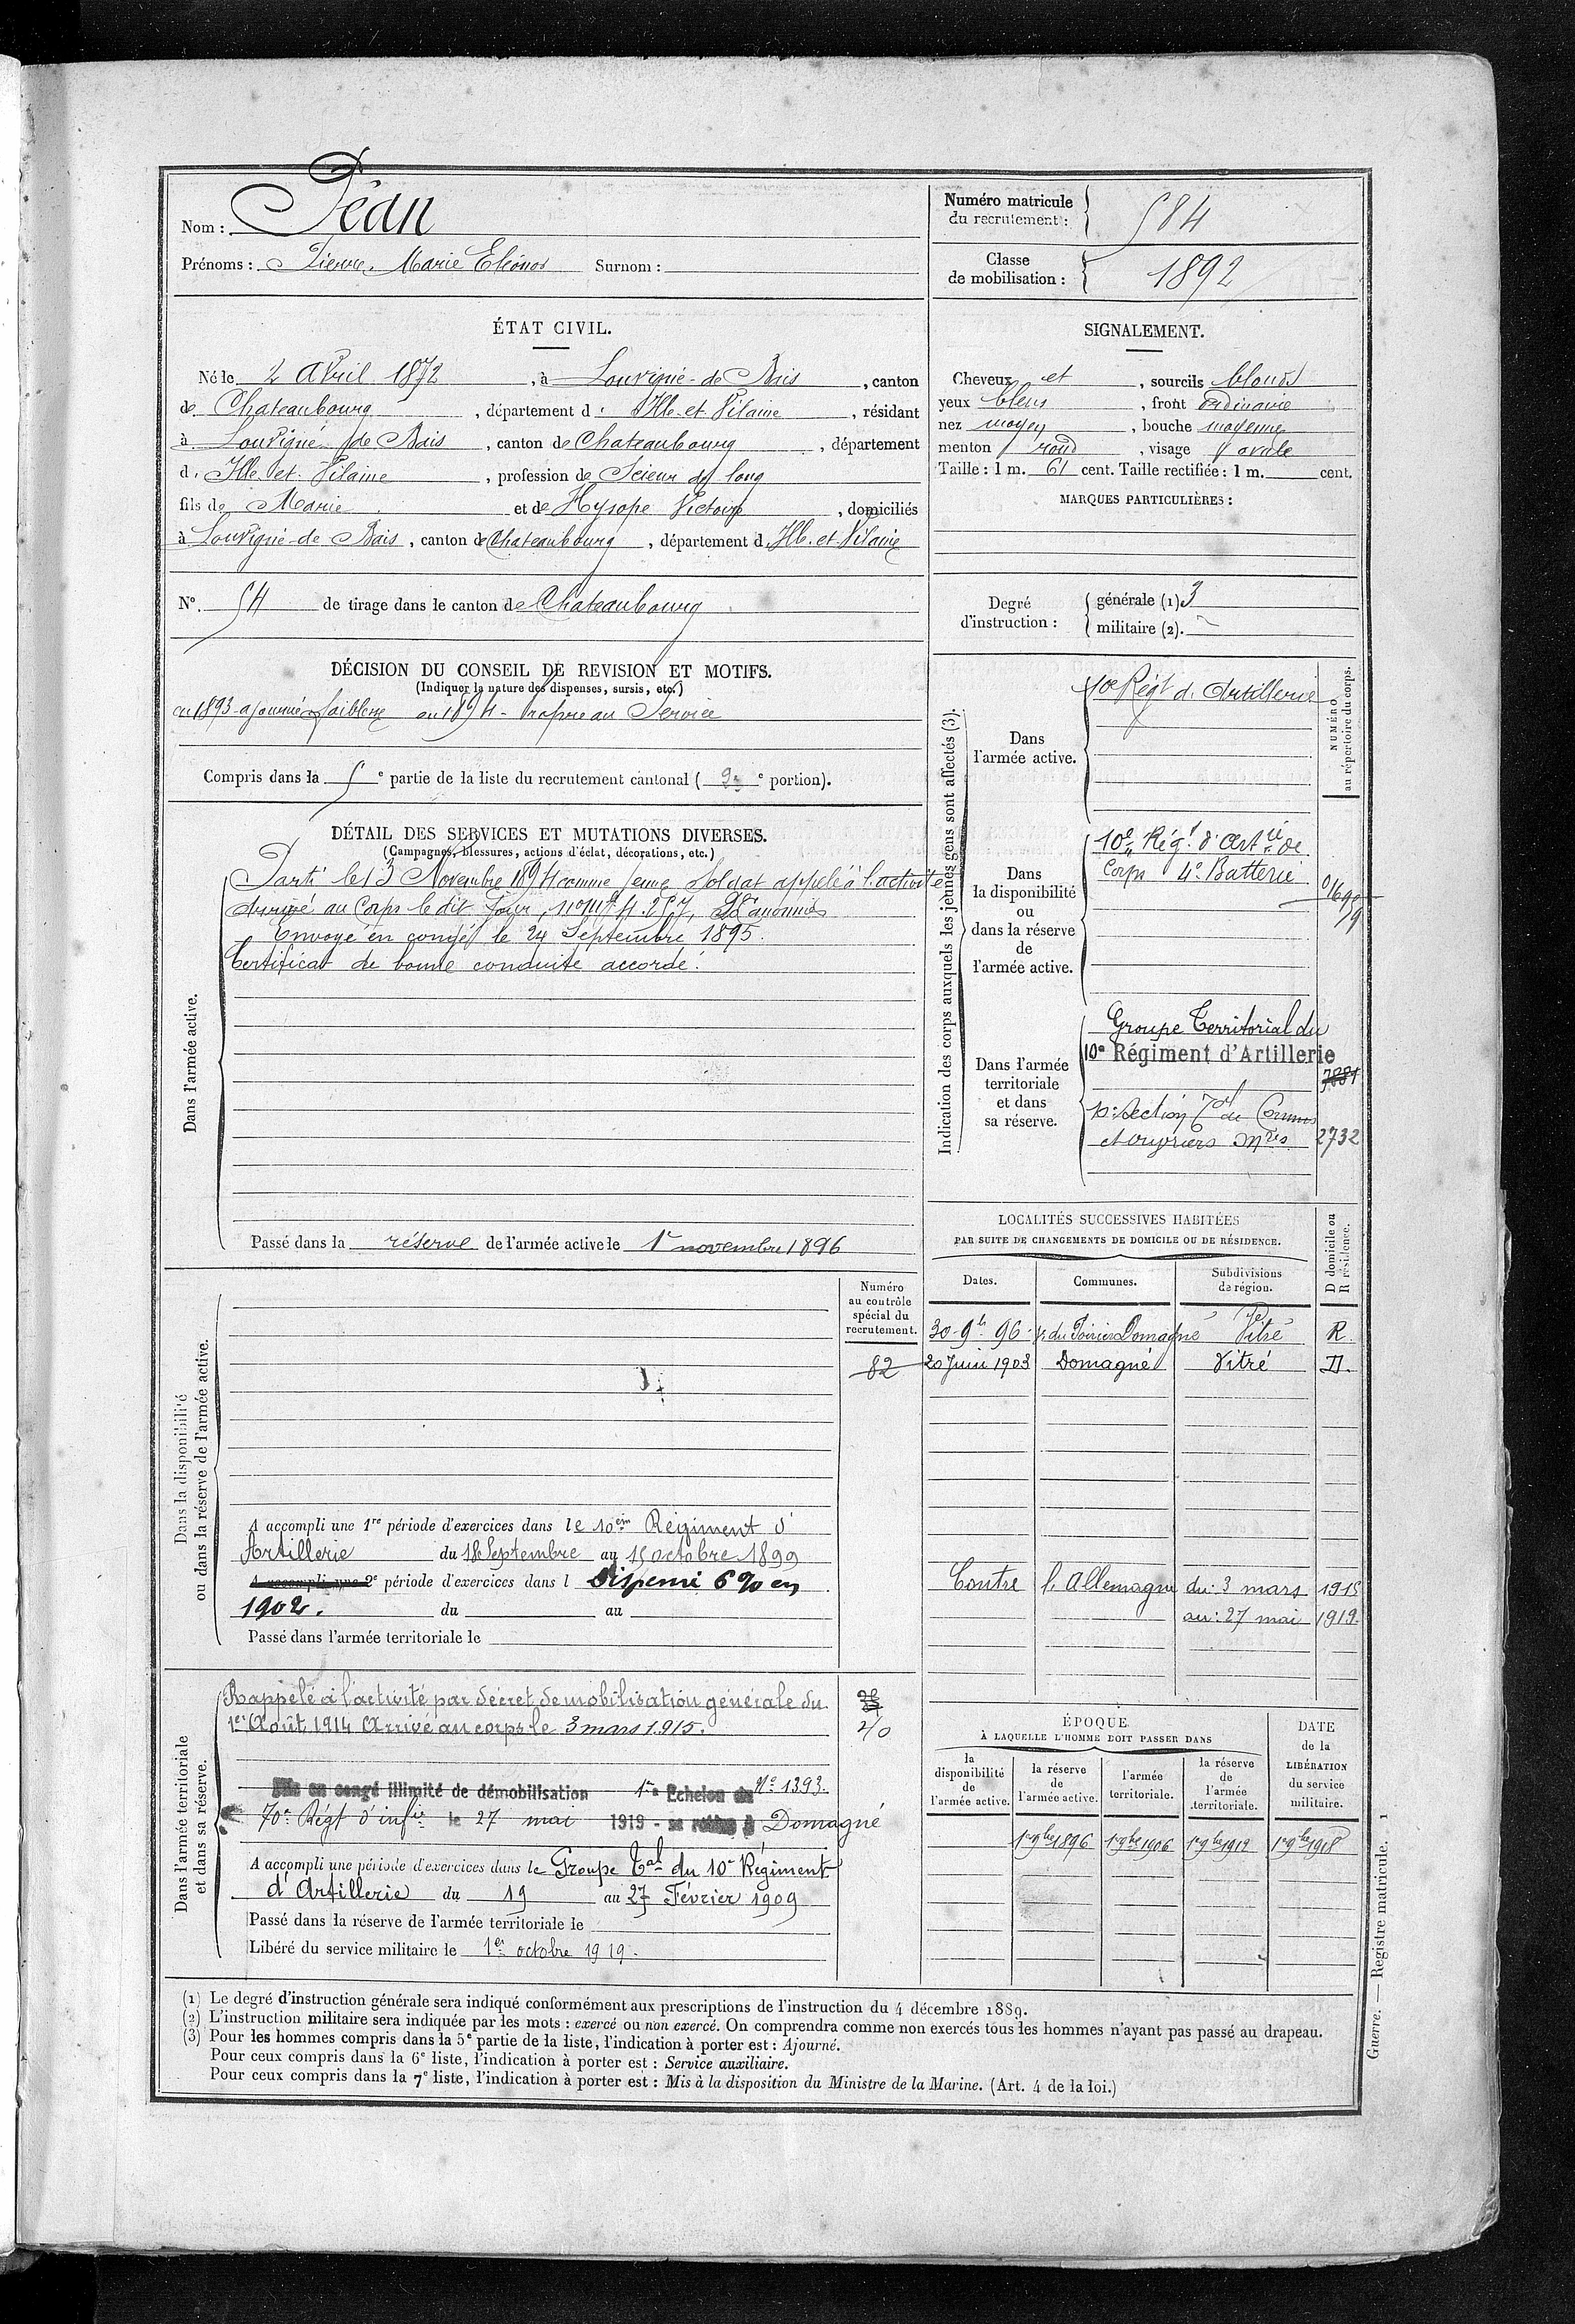 Nom : Péan
Prénoms : Pierre, Marie Eléonor Surnom :
Numéro matricule du recrutement : 584
Classe de mobilisation : 1892
ÉTAT CIVIL.
Né le 2 Avril 1872, à Louvigné-de Bais, canton
de Chateaubourg, département d' Ille-et-Vilaine, résidant
à Louvigné de Bais, canton de Chateaubourg, département
d' Ille et Vilaine, profession de Scieur de long
fils de Marie et de Hysope Victoire, domiciliés
à Louvigné-de Bais, canton de Chateaubourg, département d' Ille-et-Vilaine
N° 54 de tirage dans le canton de Chateaubourg
SIGNALEMENT.
Cheveux et, sourcils blonds
yeux bleus, front ordinaire
nez moyen, bouche moyenne
menton rond, visage ovale
Taille : 1 m. 61 cent. Taille rectifiée : 1 m. cent.
MARQUES PARTICULIÈRES :
Degré d'instruction : générale (1) 3
militaire (2).
DÉCISION DU CONSEIL DE REVISION ET MOTIFS.
(Indiquer la nature des dispenses, sursis, etc.)
en 1893 ajourné faiblesse en 1894 - Propre au Service
Compris dans la 5e partie de la liste du recrutement cantonal (2e portion).
DÉTAIL DES SERVICES ET MUTATIONS DIVERSES.
(Campagnes, blessures, actions d'éclat, décorations, etc.)
Dans l'armée active.
Parti le 13 Novembre 1894 comme jeune Soldat appelé à l'activité
Arrivé au Corps le dit Jour, 2e Canonnier
Envoyé en congé le 24 Septembre 1895.
Certificat de bonne conduite accordé.
Passé dans la réserve de l'armée active le 1er novembre 1896
Indication des corps auxquels les jeunes gens sont affectés (3).
NUMÉRO au répertoire du corps.
Dans l'armée active.
10e Régt d' Artillerie
Dans la disponibilité ou dans la réserve de l'armée active.
10e Rég.t d'Art.rie de
Corps 4e Batterie
Dans l'armée territoriale et dans sa réserve.
Groupe Territorial du
10e Régiment d'Artillerie
7881
10e Section Tale de Commis
et ouvriers Mres 2732
LOCALITÉS SUCCESSIVES HABITÉES
PAR SUITE DE CHANGEMENTS DE DOMICILE OU DE RÉSIDENCE.
Dates. Communes. Subdivisions de région. D domicile ou R résidence.
30-9b 96 v. du Poirier Domagné Vitré R.
20 Juin 1903 Domagné Vitré D.
Contre l'Allemagne du : 3 mars 1915
au : 27 mai 1919.
Dans la disponibilité ou dans la réserve de l'armée active.
Numéro au contrôle spécial du recrutement.
82
A accompli une 1re période d'exercices dans le 10em Régiment d'
Artillerie du 18 Septembre au 15 octobre 1899
A accompli une 2e période d'exercices dans l Dispensé 6% en
1902. du au
Passé dans l'armée territoriale le
Dans l'armée territoriale et dans sa réserve.
Rappelé à l'activité par décret de mobilisation générale du
1er Août 1914 Arrivé au corps le 3 mars 1915.
Mis en congé illimité de démobilisation 1er Echelon du N° 1393.
70e Régt d'infie le 27 mai 1919 - se retire à Domagné
A accompli une période d'exercices dans le Groupe Tal du 10e Régiment
d'Artillerie du 19 au 27 Février 1909
Passé dans la réserve de l'armée territoriale le
Libéré du service militaire le 1er octobre 1919.
ÉPOQUE À LAQUELLE L'HOMME DOIT PASSER DANS
DATE de la LIBÉRATION du service militaire.
la disponibilité de l'armée active.
la réserve de l'armée active.
l'armée territoriale.
la réserve de l'armée territoriale.
1er 9bre 1896 1er 9bre 1906 1er 9bre 1912 1er 9bre 1918
(1) Le degré d'instruction générale sera indiqué conformément aux prescriptions de l'instruction du 4 décembre 1889.
(2) L'instruction militaire sera indiquée par les mots : exercé ou non exercé. On comprendra comme non exercés tous les hommes n'ayant pas passé au drapeau.
(3) Pour les hommes compris dans la 5e partie de la liste, l'indication à porter est : Ajourné.
Pour ceux compris dans la 6e liste, l'indication à porter est : Service auxiliaire.
Pour ceux compris dans la 7e liste, l'indication à porter est : Mis à la disposition du Ministre de la Marine. (Art. 4 de la loi.)
Guerre. — Registre matricule. 1